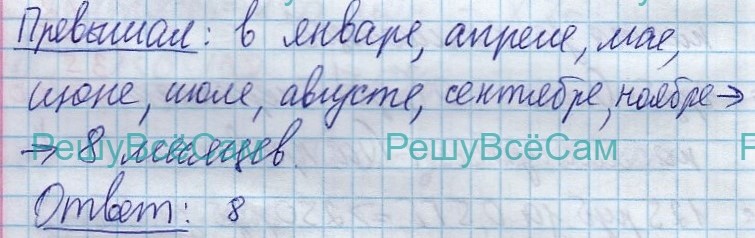 Превышал: в январе, апреле, мае,
июне, июле, августе, сентябре, ноябре →
→ 8 месяцев.
РешуВсёСам РешуВсёСам
Ответ: 8